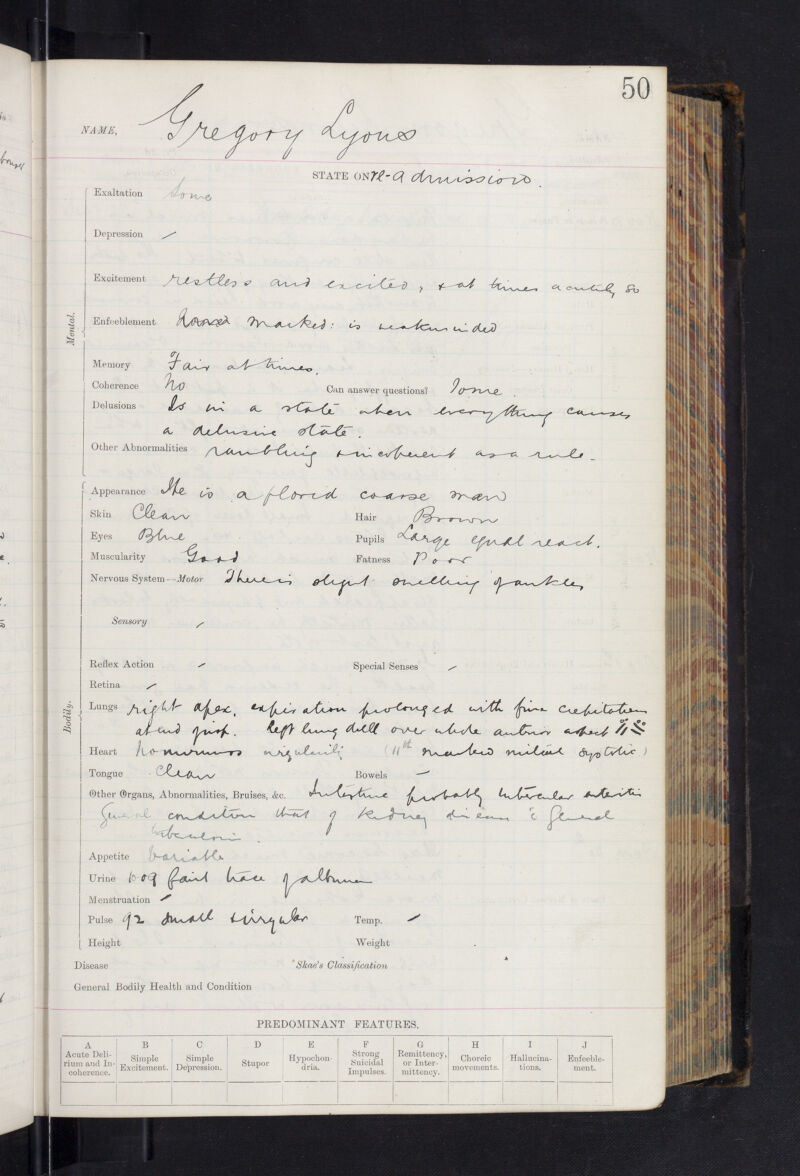 50
NAME, Gregory Lyons
STATE ON re-admission.
Mental.
Exaltation Some
Depression –
Excitement restless and excited, & at times acutely so
Enfeeblement marked: is weakminded
Memory Fair at times.
Coherence No Can answer questions? Some.
Delusions Is in a state when everything causes
a delusive state.
Other Abnormalities rambling & incoherent as a rule –
Bodily.
Appearance He is a florid coarse man
Skin Clean Hair Brown
Eyes Blue Pupils Large equal react.
Muscularity Good Fatness Poor
Nervous System—Motor There is slight swelling of ankles
Sensory –
Reflex Action – Special Senses –
Retina –
Lungs right apex, expiration prolonged with fine crepitations
at end. left lung dull over whole anterior aspect
Heart No murmurs irregularity (11th marked mitral systolic)
Tongue Clean Bowels –
Other Organs, Abnormalities, Bruises, &c. Intestine probably tubercular enteritis
General condition that of kidney disease & general
tuberculosis.
Appetite Variable
Urine 1009 faint trace of albumen
Menstruation –
Pulse 92 small & irregular Temp. –
Height Weight
Disease *Skae's Classification
General Bodily Health and Condition
PREDOMINANT FEATURES.
A B C D E F G H I J
Acute Deli- Simple Simple Stupor Hypochon- Strong Remittency, Choreic Hallucina- Enfeeble-
rium and In- Excitement. Depression. dria. Suicidal or Inter- movements. tions. ment.
coherence. Impulses. mittency.